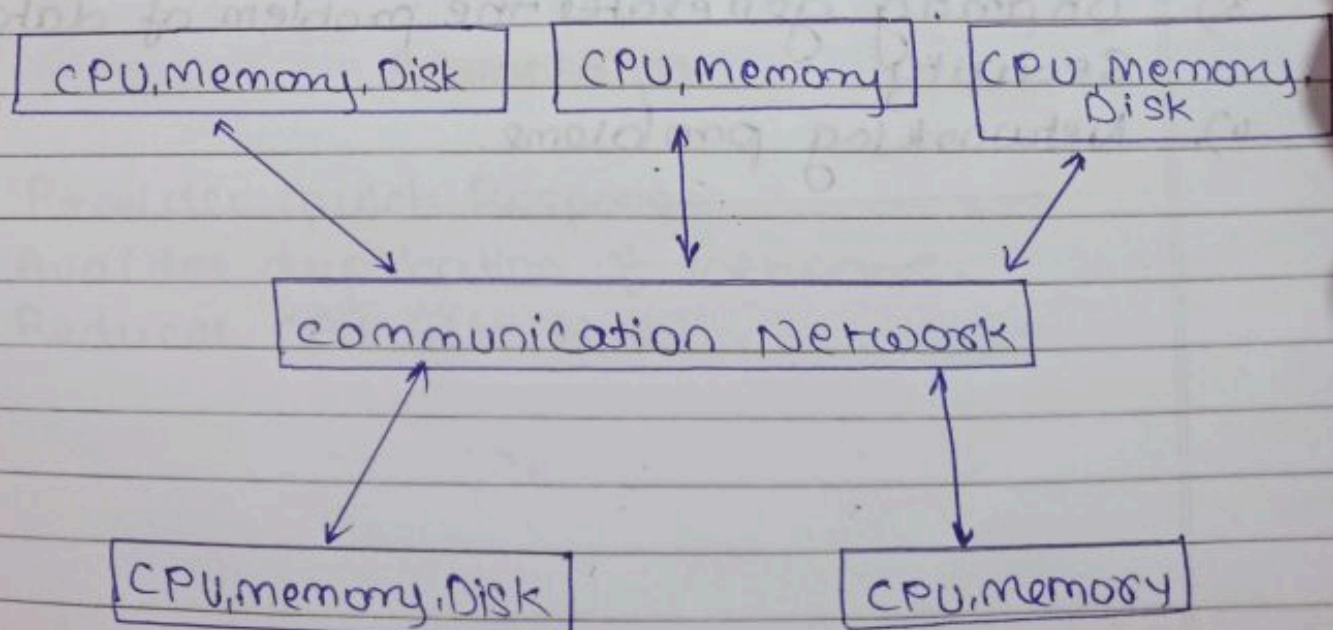 CPU, Memory, Disk
CPU, Memory
CPU, Memory,
Disk
Communication Network
CPU, Memory, Disk
CPU, Memory